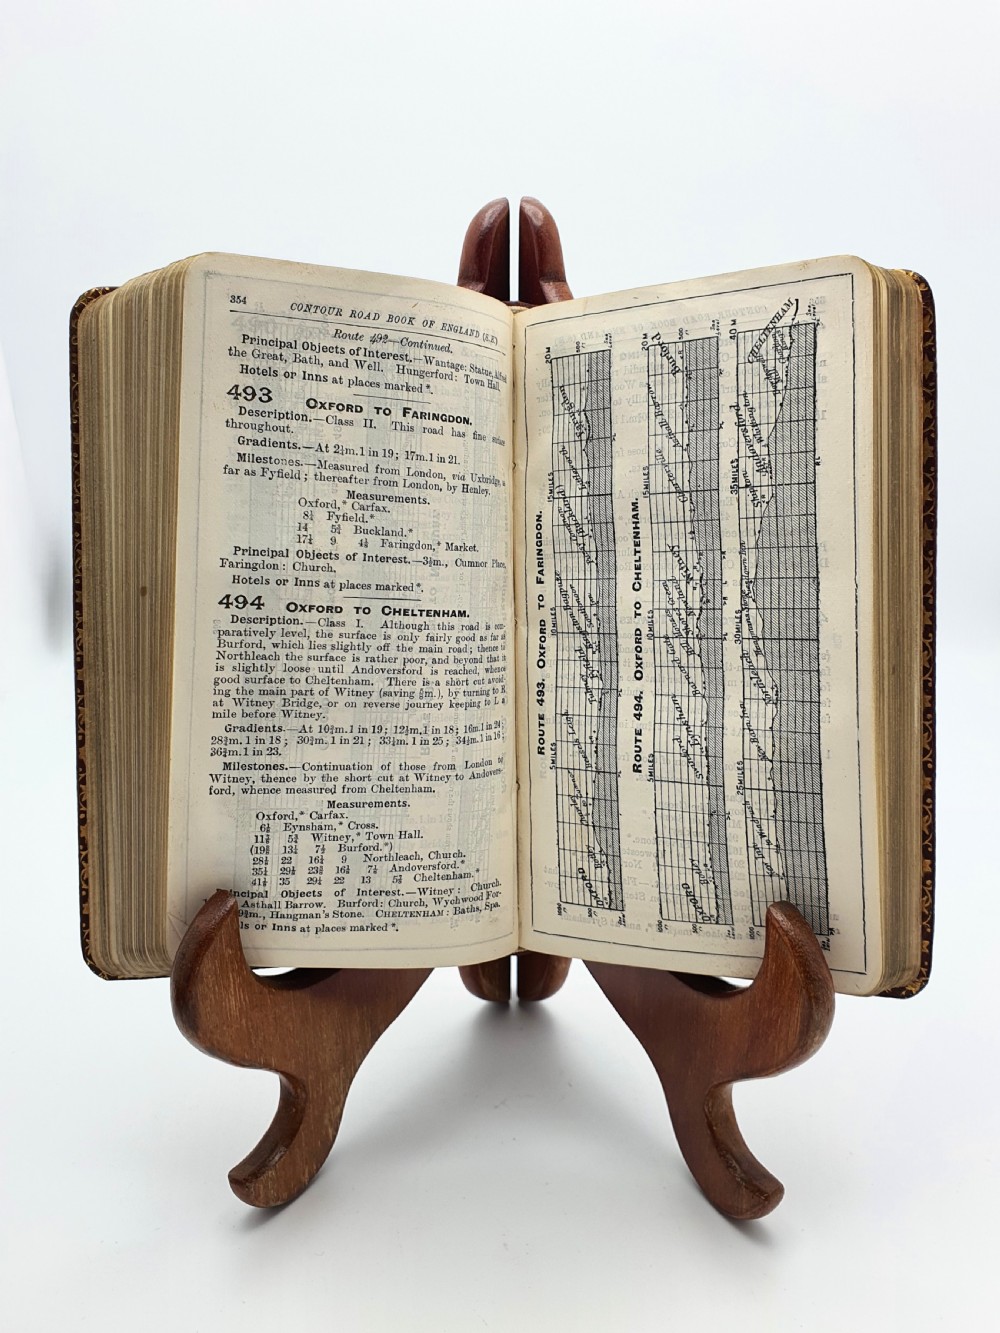 354 CONTOUR ROAD BOOK OF ENGLAND (S.E.)
Route 492—Continued.
Principal Objects of Interest.—Wantage: Statue, Alfred
the Great, Bath, and Well. Hungerford: Town Hall.
Hotels or Inns at places marked *.
493 OXFORD TO FARINGDON.
Description.—Class II. This road has fine surface
throughout.
Gradients.—At 2¼m. 1 in 19; 17m. 1 in 21.
Milestones.—Measured from London, via Uxbridge, as
far as Fyfield; thereafter from London, by Henley.
Measurements.
Oxford,* Carfax.
8¼ Fyfield.*
14 5¾ Buckland.*
17¼ 9 Faringdon,* Market.
Principal Objects of Interest.—3½m., Cumnor Place,
Faringdon: Church.
Hotels or Inns at places marked *.
494 OXFORD TO CHELTENHAM.
Description.—Class I. Although this road is com-
paratively level, the surface is only fairly good as far as
Burford, which lies slightly off the main road; thence to
Northleach the surface is rather poor, and beyond that it
is slightly loose until Andoversford is reached, whence
good surface to Cheltenham. There is a short cut avoid-
ing the main part of Witney (saving m.), by turning to R
at Witney Bridge, or on reverse journey keeping to L a
mile before Witney.
Gradients.—At 10¾m. 1 in 19; 12¾m. 1 in 18; 16m. 1 in 24;
28¾m. 1 in 18; 30¾m. 1 in 21; 33¾m. 1 in 25; 34¾m. 1 in 16;
36¾m. 1 in 23.
Milestones.—Continuation of those from London to
Witney, thence by the short cut at Witney to Andovers-
ford, whence measured from Cheltenham.
Measurements.
Oxford,* Carfax.
6¼ Eynsham,* Cross.
5¾ Witney,* Town Hall.
13¼ 7½ Burford.*)
28¼ 22 16¼ 9 Northleach, Church.
35¼ 16¼ 7¼ Andoversford.*
41¼ 35 29¼ 22 13 Cheltenham.*
Principal Objects of Interest.—Witney: Church.
Asthall Barrow. Burford: Church, Wychwood For-
m., Hangman's Stone. CHELTENHAM: Baths, Spa.
ls or Inns at places marked *.
ROUTE 493. OXFORD TO FARINGDON.
OXFORD
5 MILES
10 MILES
15 MILES
20 M
Faringdon
ROUTE 494. OXFORD TO CHELTENHAM.
OXFORD
Eynsham
5 MILES
10 MILES
Witney
15 MILES
20 M
Burford
25 MILES
Northleach
30 MILES
35 MILES
Andoversford
40 M
CHELTENHAM